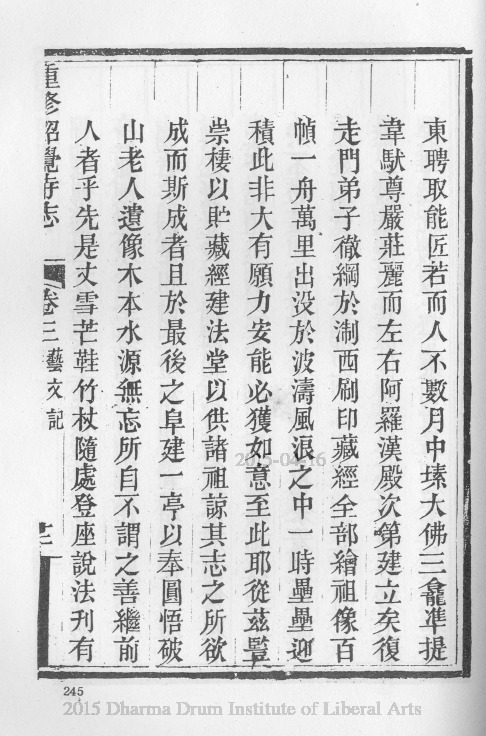 東聘取能匠若而人不數月中塐大佛三龕準提
韋䭾尊嚴莊麗而左右阿羅漢殿次第建立矣復
走門弟子徹綱於淛西刷印藏經全部繪祖像百
幀一舟萬里出没於波濤風浪之中一時壘壘迎
積此非大有願力安能必獲如意至此耶從茲豎
崇棲以貯藏經建法堂以供諸祖諒其志之所欲
成而斯成者且於最後之阜建一亭以奉圓悟破
山老人遺像木本水源無忘所自不謂之善繼前
人者乎先是丈雪芒鞋竹杖隨處登座說法刊有
重修昭覺寺志 卷三 藝文記
245
2015-04-16
2015 Dharma Drum Institute of Liberal Arts